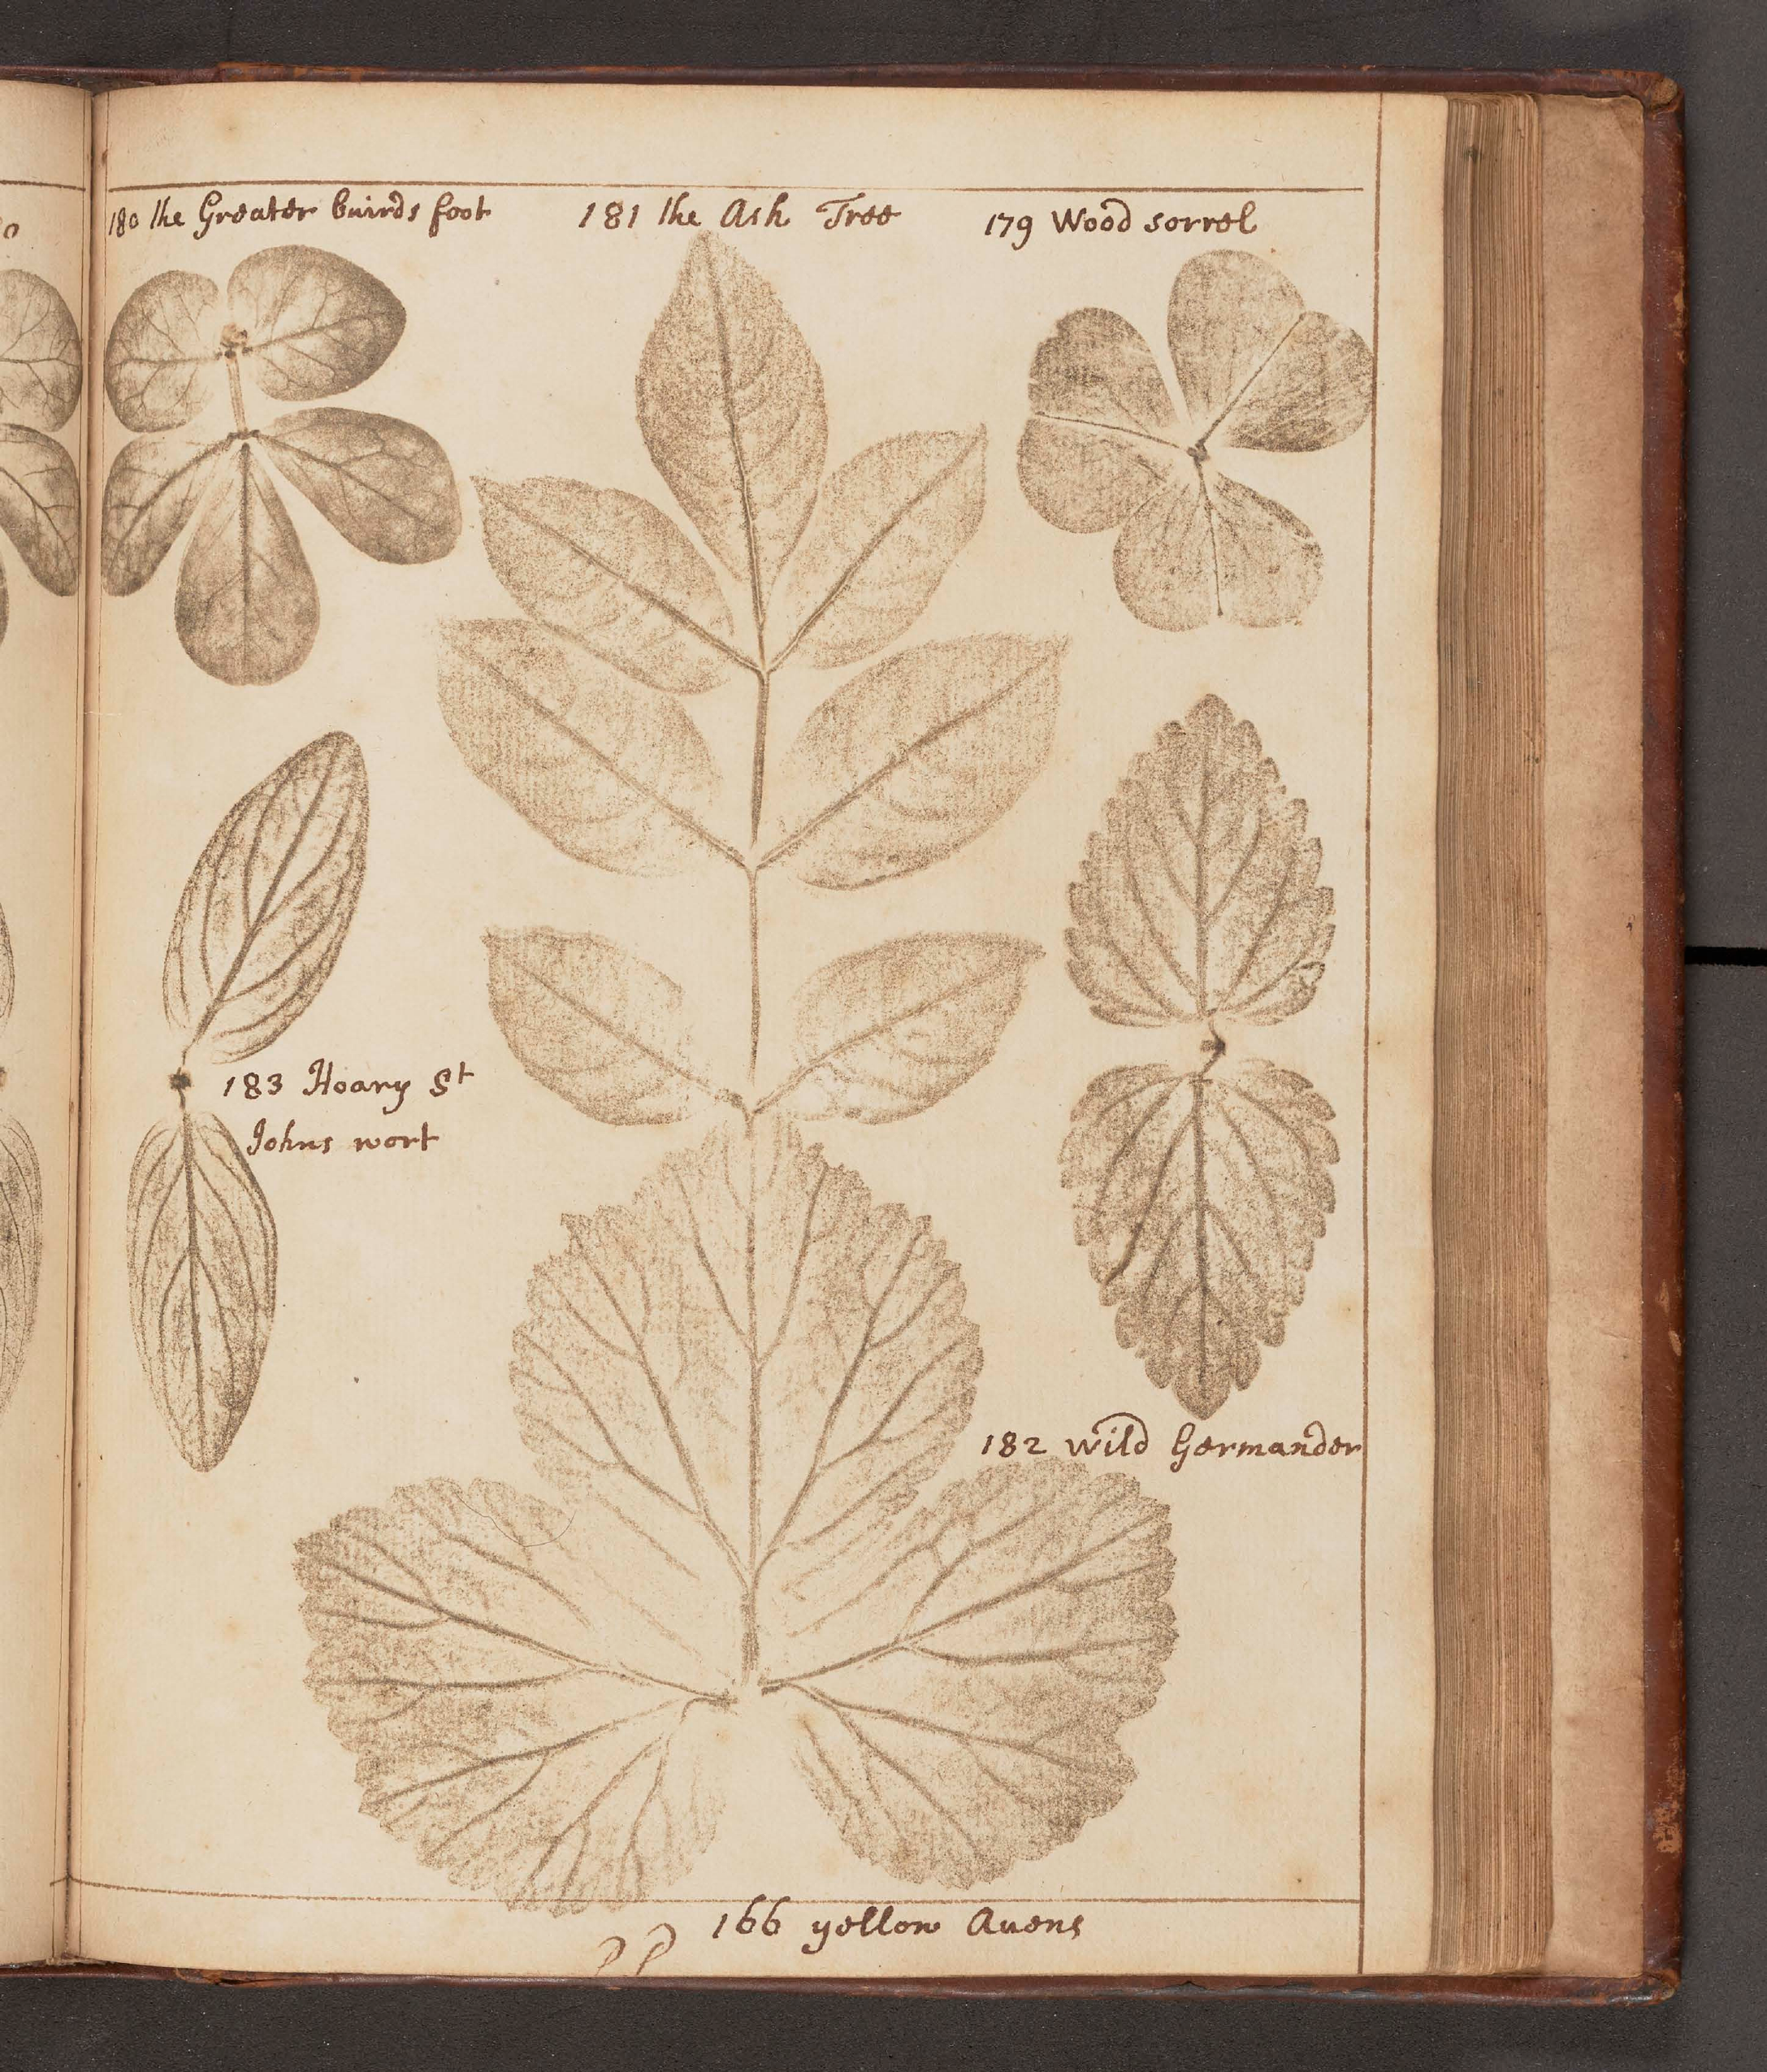 180 the Greater buirds foot
181 the Ash Tree
179 Wood sorrel
183 Hoary St
Johns wort
182 wild Germander
166 yellow Avens